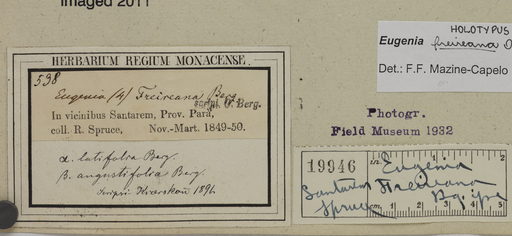 Imaged 2011
HOLOTYPUS
Eugenia freireana O
Det.: F.F. Mazine-Capelo
HERBARIUM REGIUM MONACENSE.
538
Eugenia (4) Freireana Berg
script. O. Berg.
In vicinibus Santarem, Prov. Pará,
coll. R. Spruce, Nov.-Mart. 1849-50.
α. latifolia Berg.
β. angustifolia Berg.
Kiaerskou 189
Photogr.
Field Museum 1932
19946
in.
Eugenia
Santarem Freireana
Spruce Bg.
cm. 1 2 3 4 5